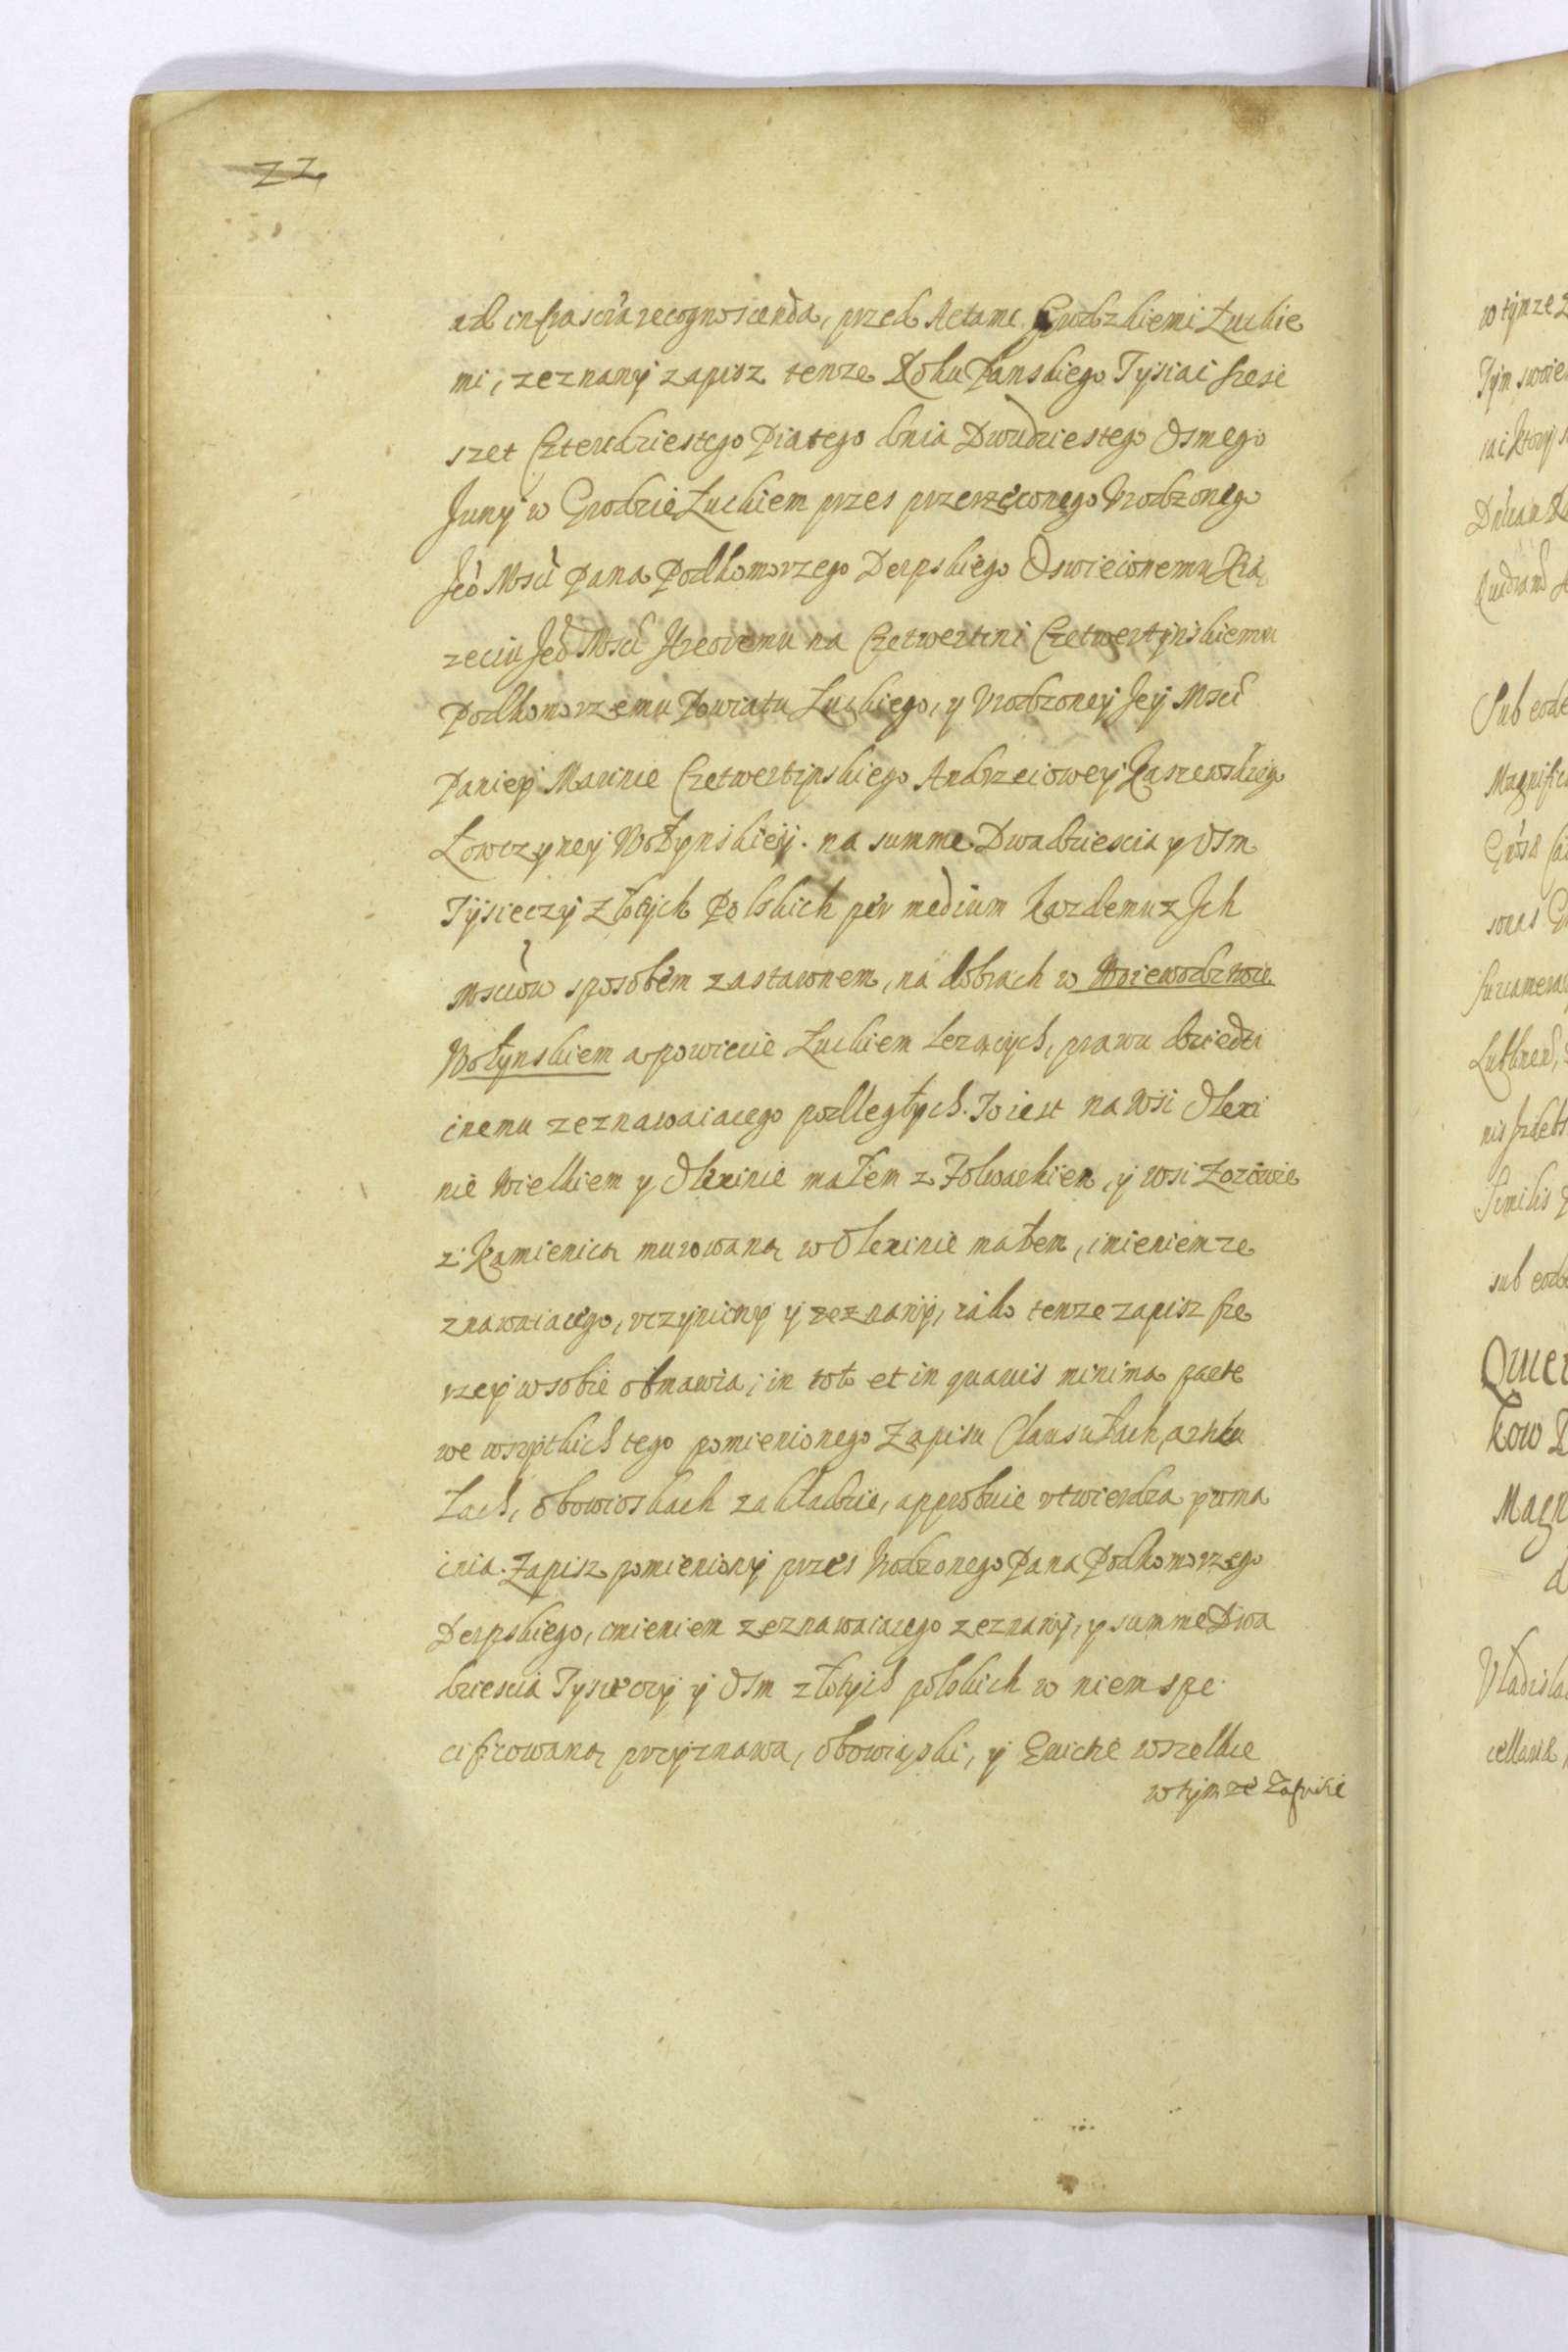 22
ad infrascra recognoscenda, przed Actami Grodzkiemi Łuckie
mi, zeznany zapisz tenze Roku Panskiego Tysiąc szesc
szet Czterdziestego Piątego dnia Dwudziestego Osmego
Juny w Grodzie Łuckiem przes przerzeconego Vrodzonego
Jeo Msci Pana Podkomorzego Derpskiego Oswieconemu Xią
zeciu Jeo Mosci Hreoremu na Czetwertni Czetwertynskiemu
Podkomorzemu Powiatu Łuckiego, y Vrodzoney Jey Mscci
Paniey Marinie Czetwertynskiego Andrzeiowey Kaszewskiego
Łowczyney Wołynskiey. na summe Dwadziescia y Osm
Tysieczy złotych Polskich per medium kazdemu z Jch
Mosciow sposobem zastawnem, na dobrach w Woiewodztwie
Wołynskiem a powiecie Łuckiem lezących, prawu dziedzi
cnemu zeznawaiącego podległych. To iest na Wsi Olexi
nie Wielkiem y Olexinie małem z Folwarkiem, y wsi Zozowie
z Kamienicą murowaną w Olexinie małem, imieniem ze
znawaiącego, vczyniony y zeznany, iako tenze zapisz sze
rzey w sobie obmawia, in toto et in quauis minima parte
we wszytkich tego pomienionego Zapisu Clausułach, artiku
łach, obowioskach zakładzie, approbuie vtwierdza y wma
cnia. Zapisz pomieniony przes Vrodzonego Pana Podkomorzego
Derpskiego, imieniem zeznawaiącego zeznany, y summe Dwa
dziescia Tysieczy y Osm złotych polskich w niem spe
cifiowaną przyznawa, obowiąski, y Euictie wszelkie
w tymze Zapisie